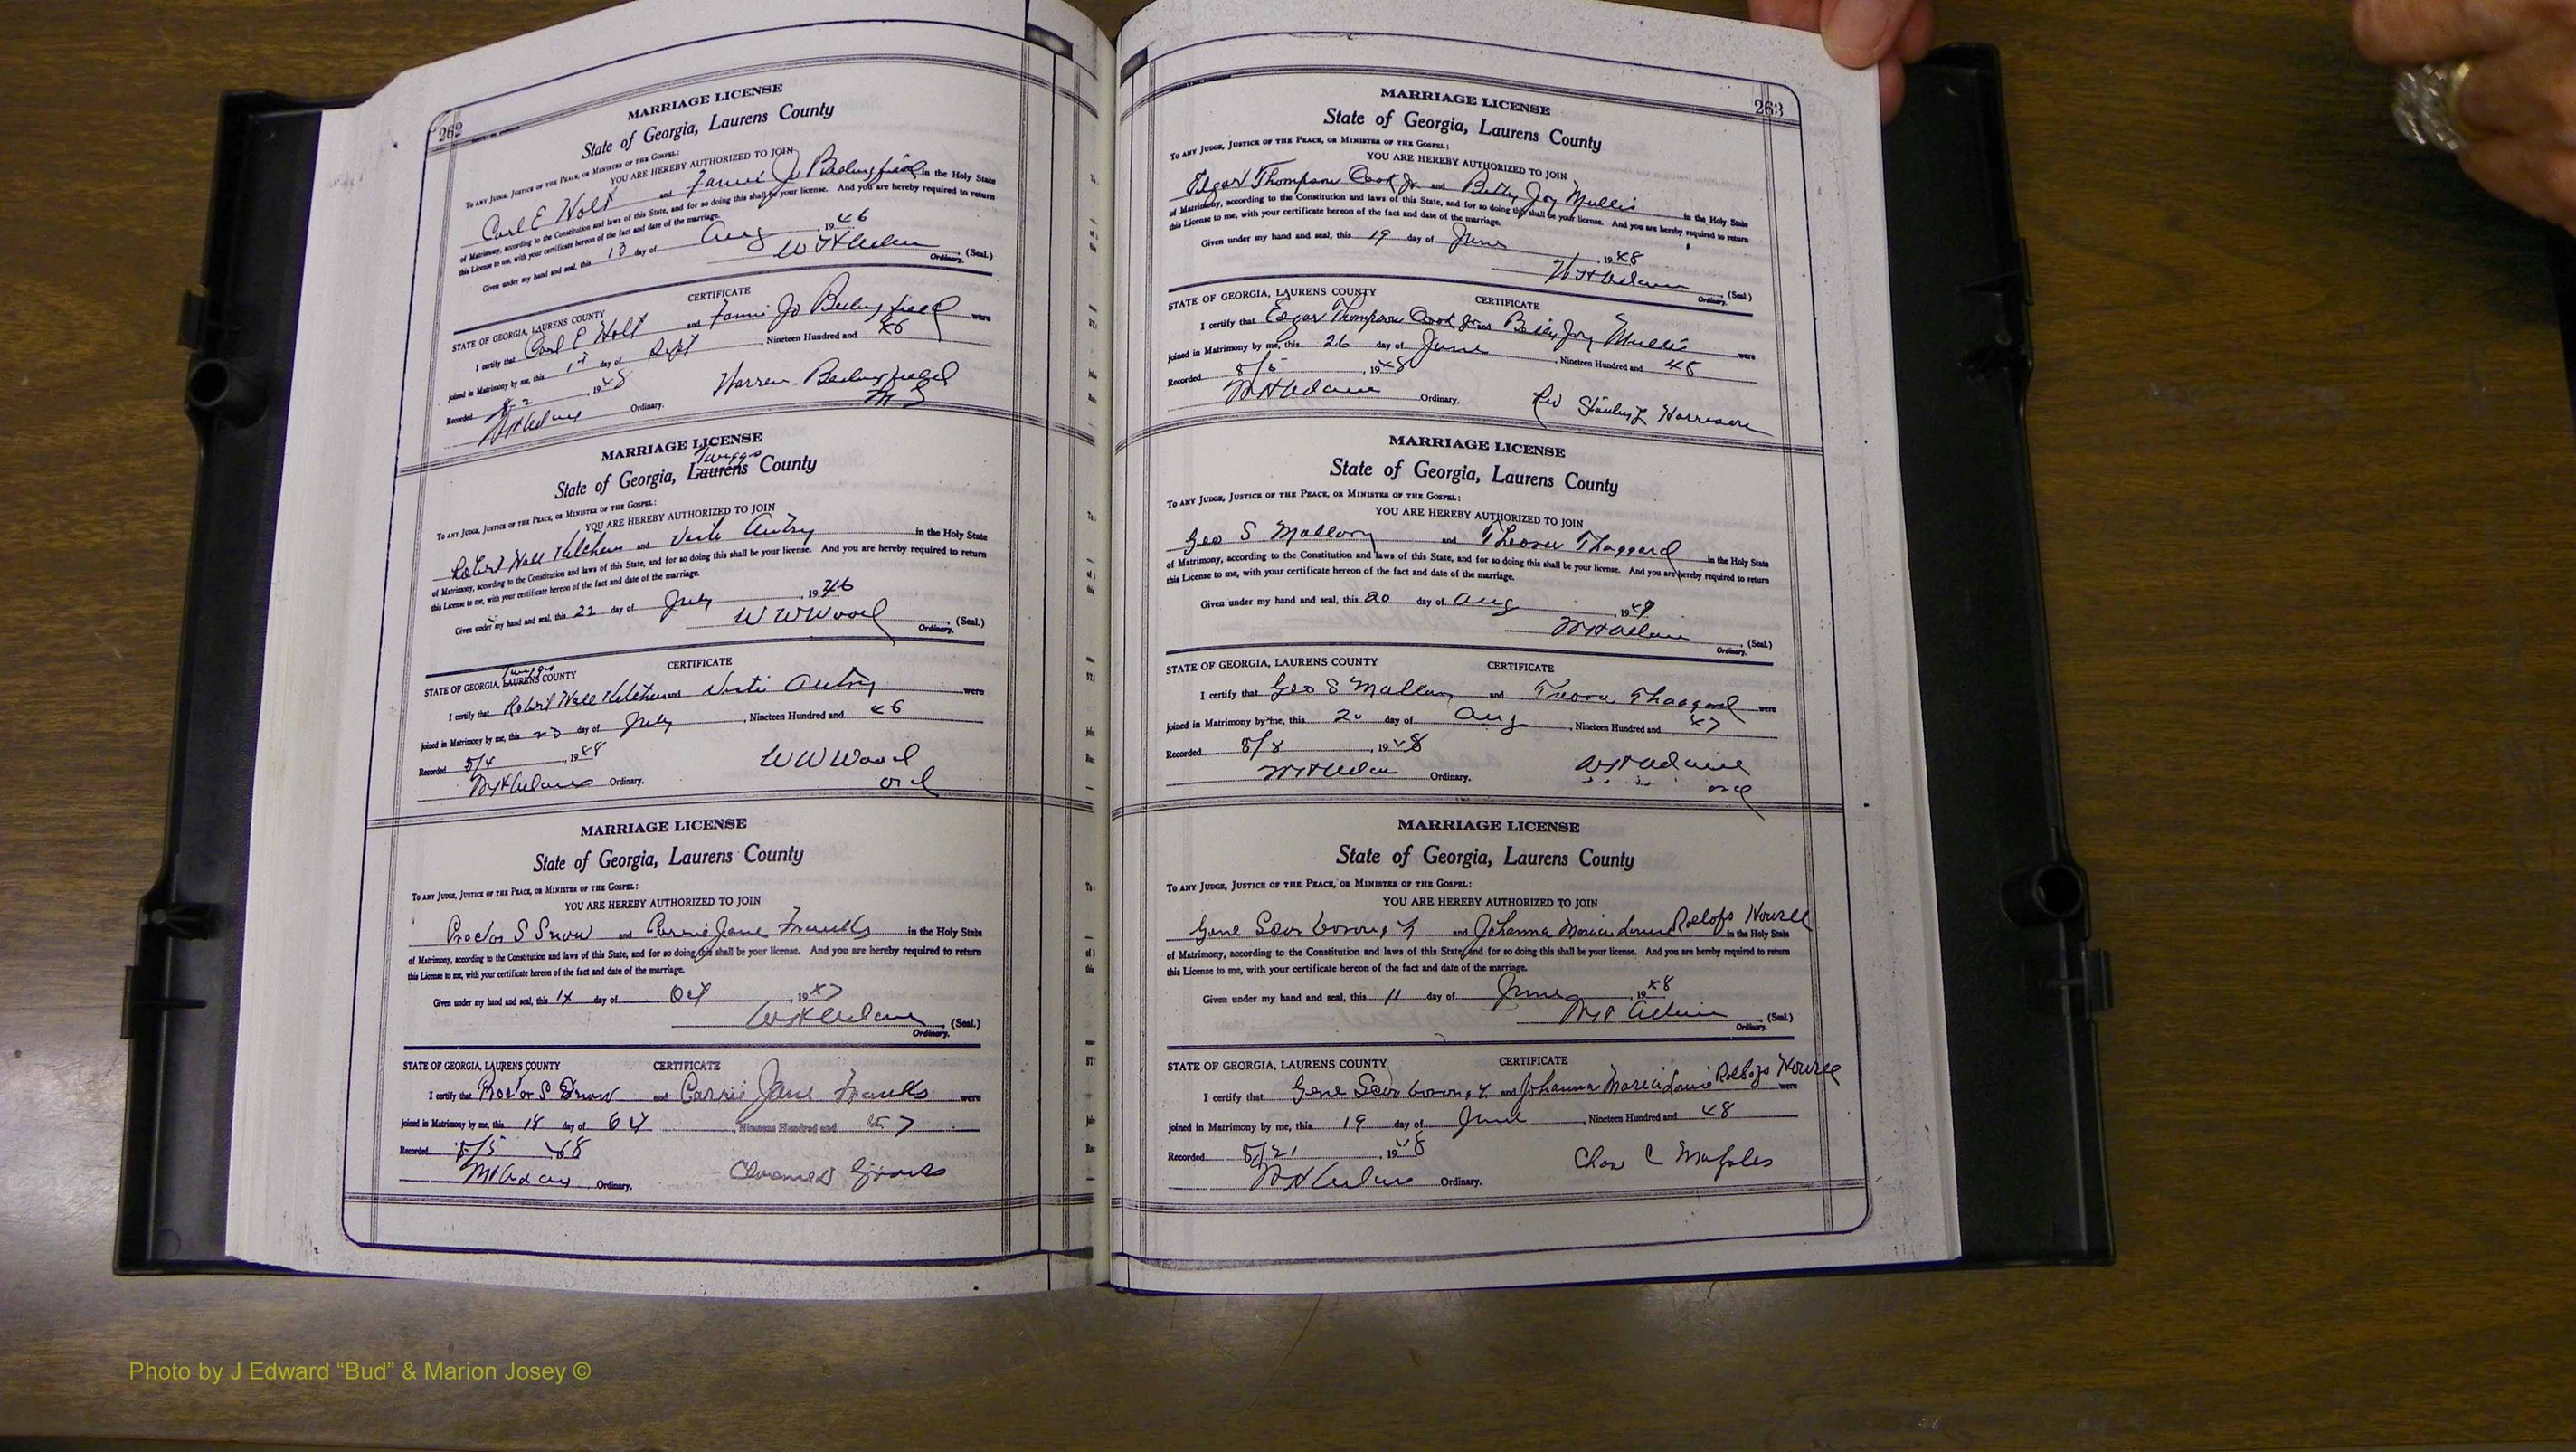 262
MARRIAGE LICENSE
State of Georgia, Laurens County
TO ANY JUDGE, JUSTICE OF THE PEACE, OR MINISTER OF THE GOSPEL:
YOU ARE HEREBY AUTHORIZED TO JOIN
Carl E Holt and Fannie Jo Bedingfield in the Holy State
of Matrimony, according to the Constitution and laws of this State, and for so doing this shall be your license. And you are hereby required to return
this License to me, with your certificate hereon of the fact and date of the marriage.
Given under my hand and seal, this 13 day of Aug, 1946
(Seal.)
Ordinary.
CERTIFICATE
STATE OF GEORGIA, LAURENS COUNTY
I certify that Carl E Holt and Fannie Jo Bedingfield were
joined in Matrimony by me, this 1st day of Sept, Nineteen Hundred and 46
Recorded 8-2, 1948
Ordinary.
Bedingfield
MARRIAGE LICENSE
Twiggs
State of Georgia, Laurens County
TO ANY JUDGE, JUSTICE OF THE PEACE, OR MINISTER OF THE GOSPEL:
YOU ARE HEREBY AUTHORIZED TO JOIN
Robert Hall Kitchens and Autry in the Holy State
of Matrimony, according to the Constitution and laws of this State, and for so doing this shall be your license. And you are hereby required to return
this License to me, with your certificate hereon of the fact and date of the marriage.
Given under my hand and seal, this 22 day of July, 1946
W W Wood (Seal.)
Ordinary.
CERTIFICATE
Twiggs
STATE OF GEORGIA, LAURENS COUNTY
I certify that Robert Hall Kitchens and Autry were
joined in Matrimony by me, this 23 day of July, Nineteen Hundred and 46
Recorded 8/4, 19
Ordinary.
W W Wood
Ord
MARRIAGE LICENSE
State of Georgia, Laurens County
TO ANY JUDGE, JUSTICE OF THE PEACE, OR MINISTER OF THE GOSPEL:
YOU ARE HEREBY AUTHORIZED TO JOIN
Proctor S Snow and Carrie Jane Franks in the Holy State
of Matrimony, according to the Constitution and laws of this State, and for so doing this shall be your license. And you are hereby required to return
this License to me, with your certificate hereon of the fact and date of the marriage.
Given under my hand and seal, this 14 day of Oct, 1947
(Seal.)
Ordinary.
STATE OF GEORGIA, LAURENS COUNTY CERTIFICATE
I certify that Proctor S Snow and Carrie Jane Franks were
joined in Matrimony by me, this 18 day of Oct, Nineteen Hundred and 47
Recorded 8/5 48
Ordinary.
263
MARRIAGE LICENSE
State of Georgia, Laurens County
TO ANY JUDGE, JUSTICE OF THE PEACE, OR MINISTER OF THE GOSPEL:
YOU ARE HEREBY AUTHORIZED TO JOIN
Edgar Thompson Cook Jr and Betty Joy Mullis in the Holy State
of Matrimony, according to the Constitution and laws of this State, and for so doing this shall be your license. And you are hereby required to return
this License to me, with your certificate hereon of the fact and date of the marriage.
Given under my hand and seal, this 19 day of June, 1948
(Seal.)
Ordinary.
STATE OF GEORGIA, LAURENS COUNTY CERTIFICATE
I certify that Edgar Thompson Cook Jr and Betty Joy Mullis were
joined in Matrimony by me, this 26 day of June, Nineteen Hundred and 48
Recorded 8/5, 1948
Ordinary.
Rev Stanley L Harrison
MARRIAGE LICENSE
State of Georgia, Laurens County
TO ANY JUDGE, JUSTICE OF THE PEACE, OR MINISTER OF THE GOSPEL:
YOU ARE HEREBY AUTHORIZED TO JOIN
Geo S Mallory and Thaggard in the Holy State
of Matrimony, according to the Constitution and laws of this State, and for so doing this shall be your license. And you are hereby required to return
this License to me, with your certificate hereon of the fact and date of the marriage.
Given under my hand and seal, this 20 day of Aug, 1947
(Seal.)
Ordinary.
STATE OF GEORGIA, LAURENS COUNTY CERTIFICATE
I certify that Geo S Mallory and Thaggard were
joined in Matrimony by me, this 20 day of Aug, Nineteen Hundred and 47
Recorded 8/8, 1948
Ordinary.
Ord
MARRIAGE LICENSE
State of Georgia, Laurens County
TO ANY JUDGE, JUSTICE OF THE PEACE, OR MINISTER OF THE GOSPEL:
YOU ARE HEREBY AUTHORIZED TO JOIN
Gene Scarborough and Johanna Maria Louise Roelofs Howell in the Holy State
of Matrimony, according to the Constitution and laws of this State, and for so doing this shall be your license. And you are hereby required to return
this License to me, with your certificate hereon of the fact and date of the marriage.
Given under my hand and seal, this 11 day of June, 1948
(Seal.)
Ordinary.
STATE OF GEORGIA, LAURENS COUNTY CERTIFICATE
I certify that Gene Scarborough and Johanna Maria Louise Roelofs Howell were
joined in Matrimony by me, this 19 day of June, Nineteen Hundred and 48
Recorded 8/21, 1948
Ordinary.
Chas C Maples
Photo by J Edward “Bud” & Marion Josey ©